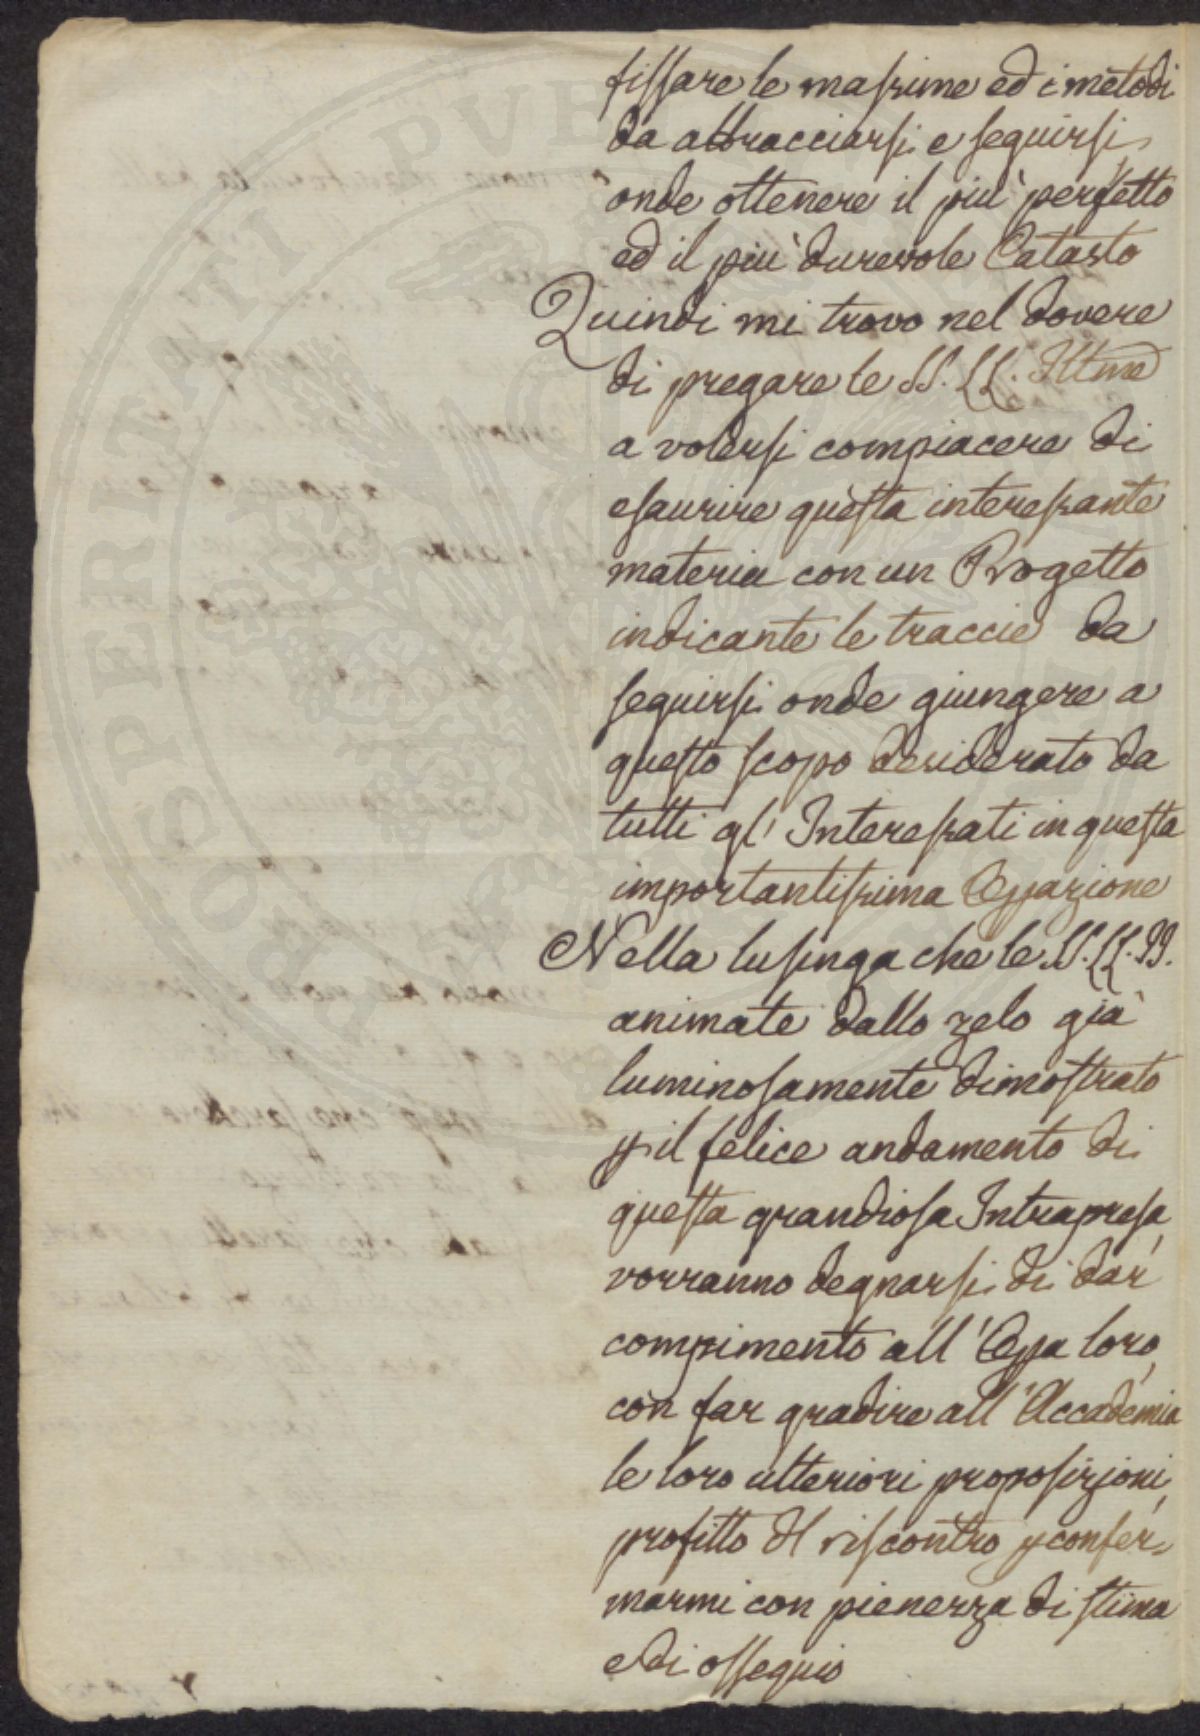 fissare le massime ed i metodi
da abbracciarsi e seguirsi
onde ottenere il più perfetto
ed il più durevole Catasto
Quindi mi trovo nel dovere
di pregare le SS. LL. Illme
a volersi compiacere di
esaurire questa interessante
materia con un Progetto
indicante le traccie da
seguirsi onde giungere a
questo scopo desiderato da
tutti gl' Interessati in questa
importantissima Opazione
Nella lusinga che le SS. LL. PP.
animate dallo zelo già
luminosamente dimostrato
p il felice andamento di
questa grandiosa Intrapresa,
vorranno degnarsi di dar
compimento all' Opa loro,
con far gradire all' Accademia
le loro ulteriori proposizioni,
profitto del riscontro p confer-
marmi con pienezza di stima
e di ossequio
PROSPERITATI PVBL